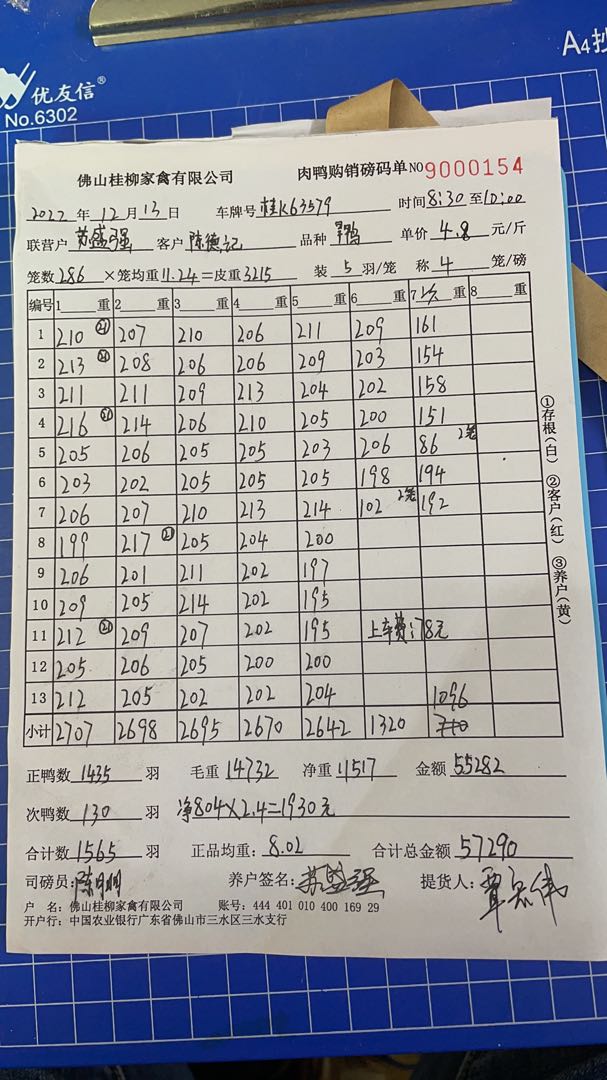 优友信
No.6302
A4抄
佛山桂柳家禽有限公司 肉鸭购销磅码单 NO 9000154
2022年12月13日 车牌号 桂K63579 时间 8:30 至 10:00
联营户 苏盛强 客户 陈德记 品种 鸭 单价 4.8 元/斤
笼数 286 ×笼均重 11.24 =皮重 3215 装 5 羽/笼 称 4 笼/磅
编号 1 重 2 重 3 重 4 重 5 重 6 重 7 次 重 8 重
1 210 ㉑ 207 210 206 211 209 161
2 213 208 206 206 209 203 154
3 211 211 209 213 204 202 158
4 216 214 206 210 205 200 151
5 205 206 205 205 203 206 86 2笼
6 203 202 205 205 205 198 194
7 206 207 210 213 214 102 2笼 192
8 199 217 ㉑ 205 204 200
9 206 201 211 202 197
10 209 205 214 202 195
11 212 209 207 202 195 上车费:78元
12 205 206 205 200 200
13 212 205 202 202 204 1096
小计 2707 2698 2695 2670 2642 1320 710
正鸭数 1435 羽 毛重 14732 净重 11517 金额 55282
次鸭数 130 羽 净804×2.4=1930元
合计数 1565 羽 正品均重: 8.02 合计总金额 57290
司磅员: 陈明 养户签名: 苏盛强 提货人: 覃
户 名: 佛山桂柳家禽有限公司 账号: 444 401 010 400 169 29
开户行: 中国农业银行广东省佛山市三水区三水支行
①存根(白) ②客户(红) ③养户(黄)